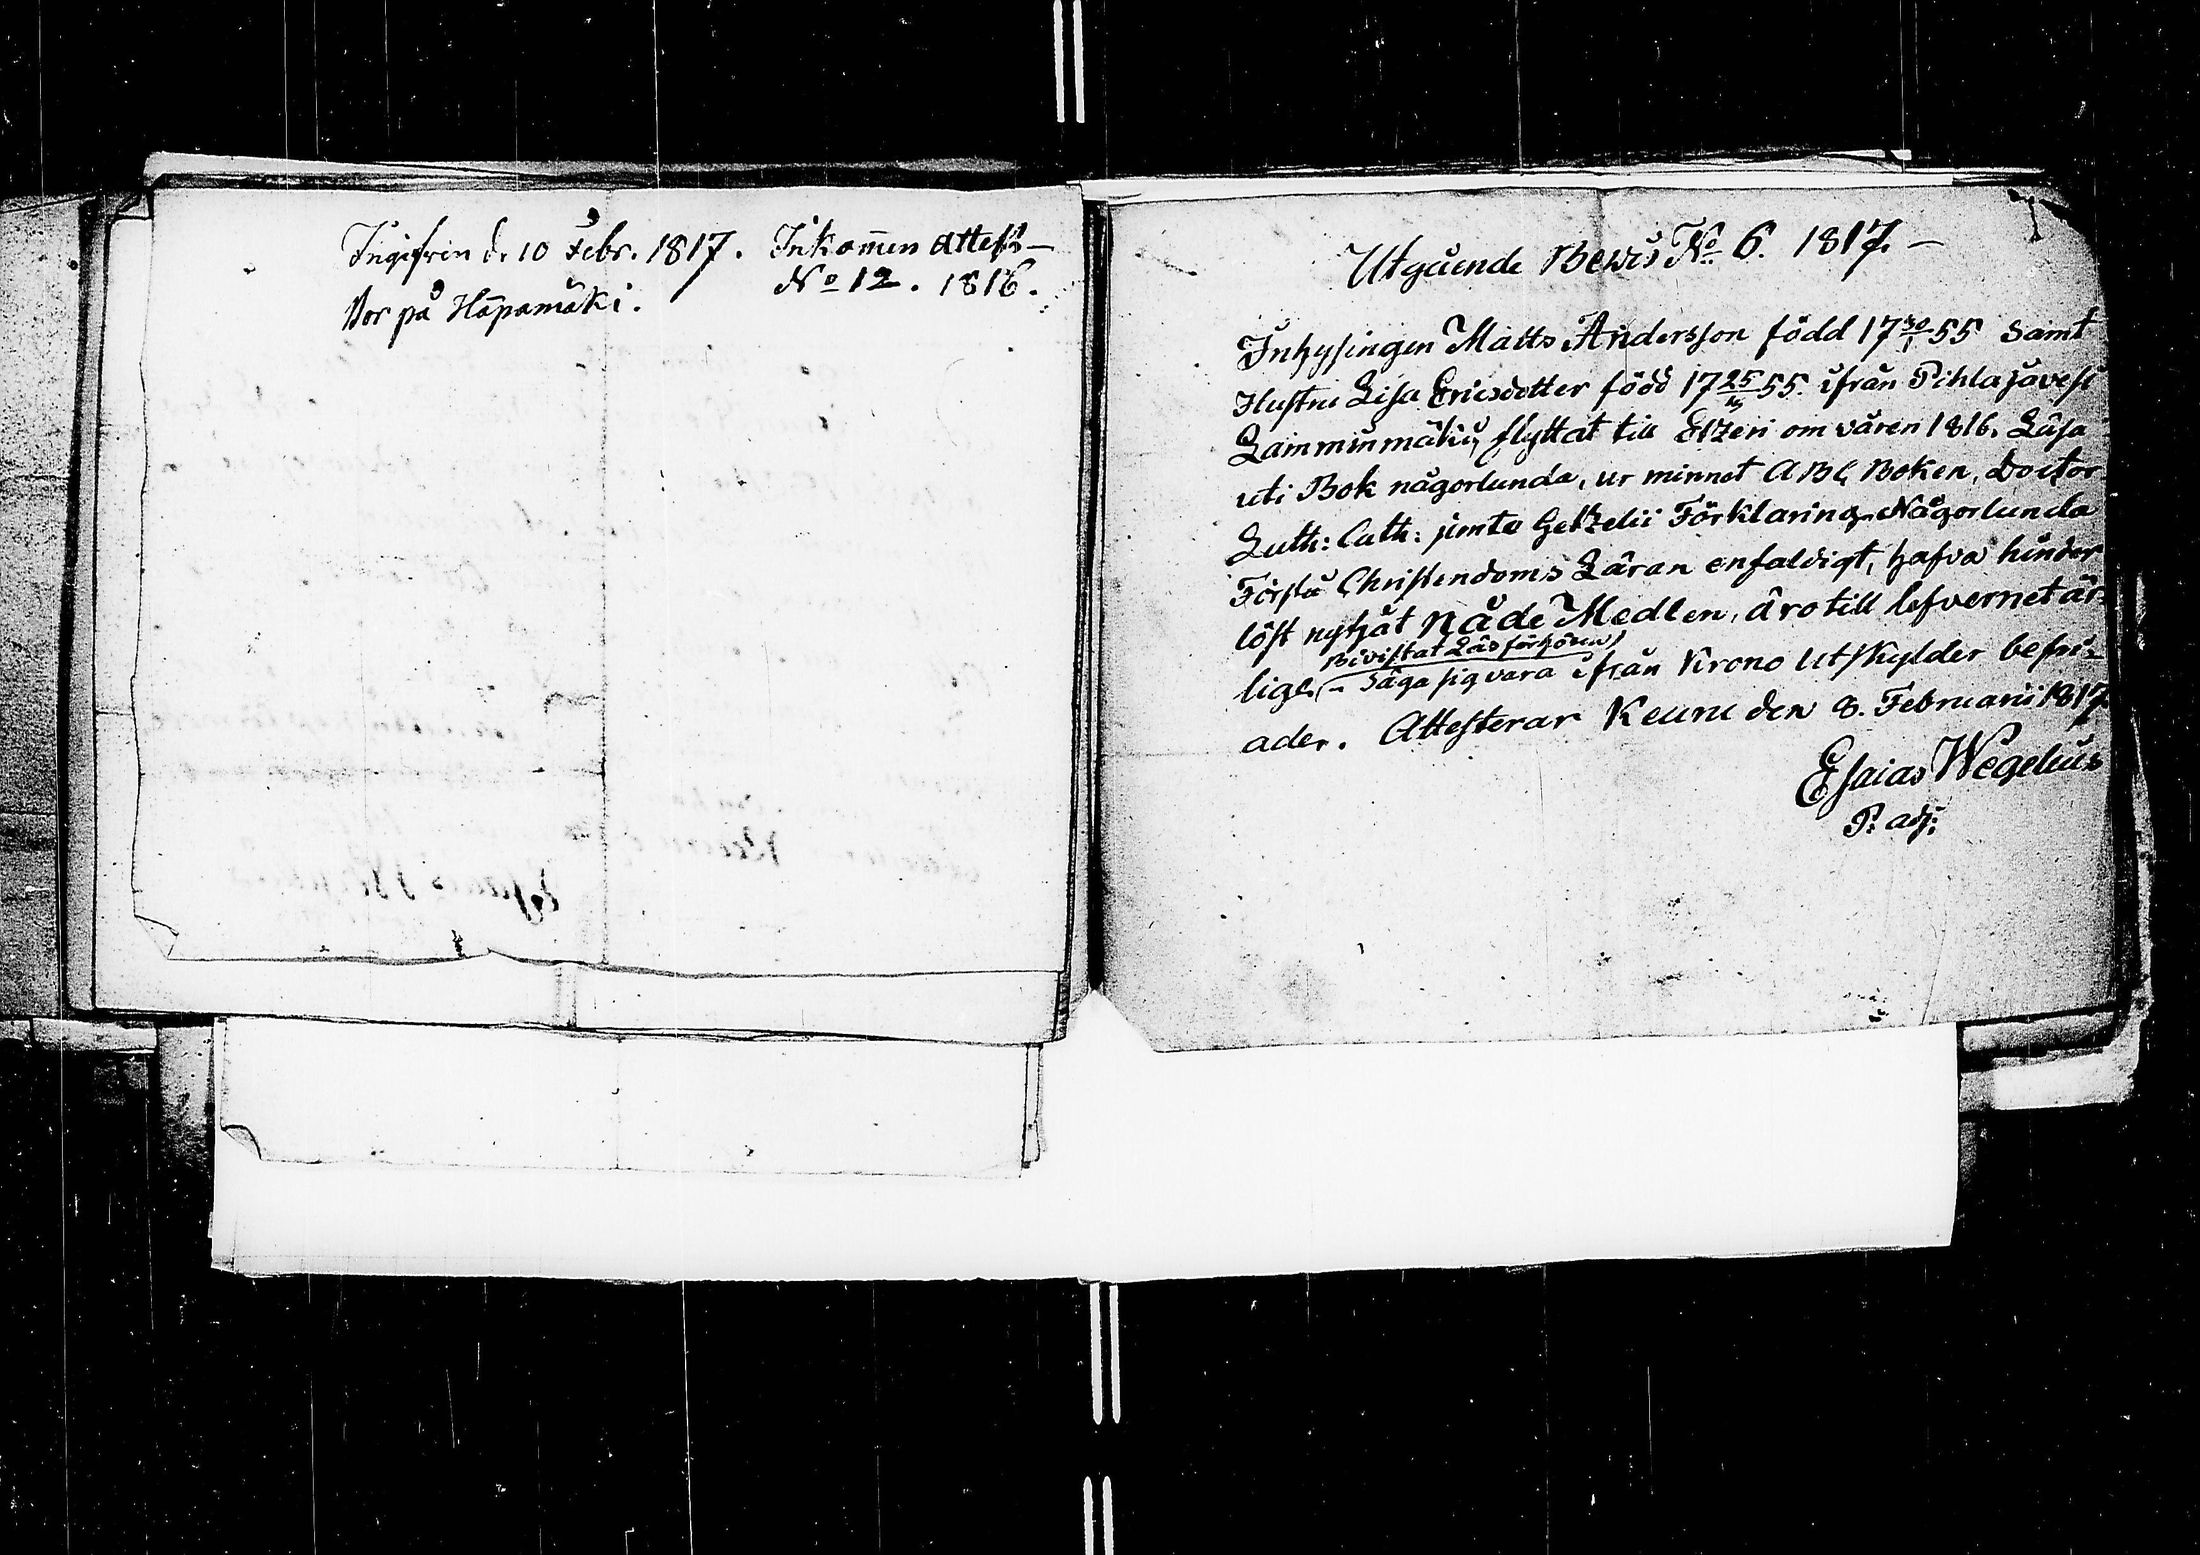 Ingifven d. 10 Febr. 1817. Inkom̄en Attest –
No 12. 1816.
Bor på Hapamäki.
Utgående Bewis No 6. 1817. –
Inhysingen Matts Andersson född 17 30/1 55 samt
Hustru Lisa Ericsdotter född 17 25/ 55. ifrån Pihlajavesi
flyttat till Etzeri om våren 1816. Läsa
uti Bok någorlunda, ur minnet ABC Boken, Doctor
Luth: Cath: jemte Getzelii Förklaring Någorlunda
Förstå Christendoms Läran enfaldigt, hafva hinder
löst nytjat Nåde Medlen, äro till lefvernet är-
Bivistat Läsförhören
lige, – Säga sig vara ifrån Krono Utskylder befri-
ader. Attesterar Keuru den 8. Februarii 1817
Esaias Wegelius
P: adj: